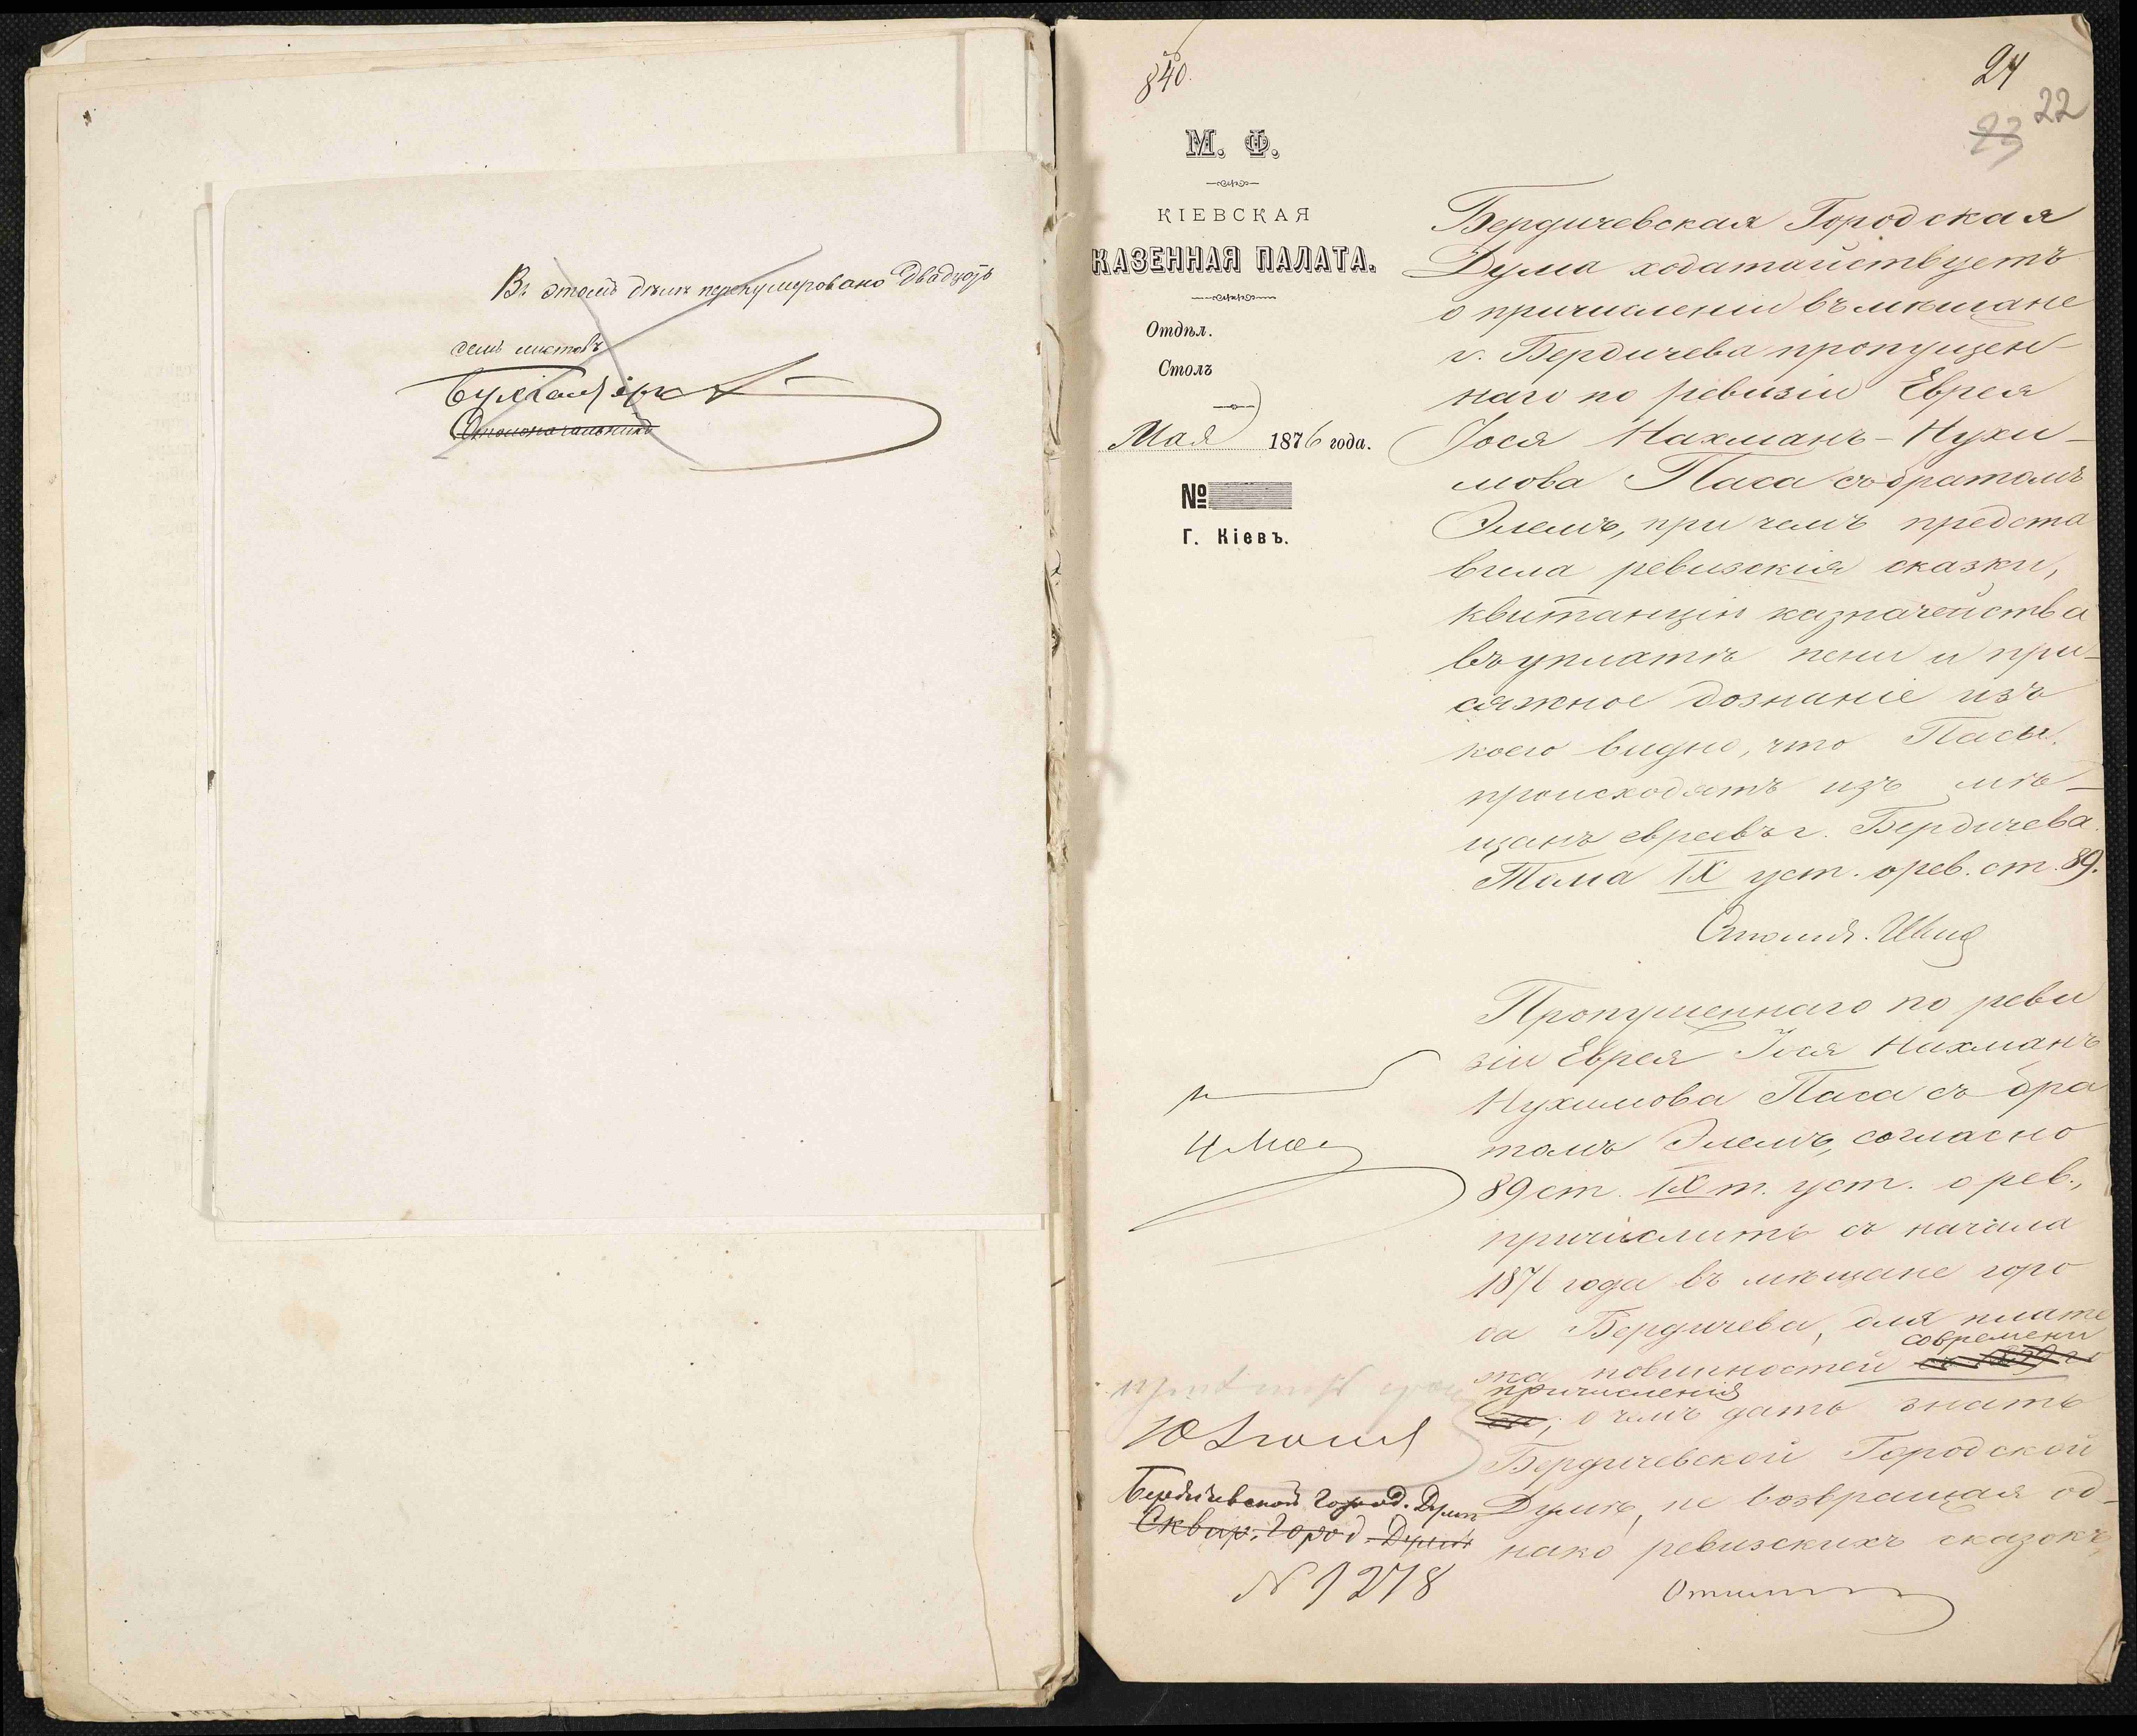 Въ этомъ дѣлѣ перенумеровано двадцать
семь листовъ
Бухгалтеръ
Столоначальникъ
840.
24
23
22
М. Ф.
КІЕВСКАЯ
КАЗЕННАЯ ПАЛАТА.
Отдѣл.
Столъ
Мая 1876 года.
№
Г. Кіевъ.
Бердичевская Городская
Дума ходатайствуетъ
о причисленіи въ мѣщане
г. Бердичева пропущен-
наго по ревизіи Еврея
Іося Нахманъ-Нухи-
мова Паса съ братомъ
Элемъ, при чемъ предста
вила ревизскія сказки,
квитанцію казначейства
въ уплатѣ пени и при-
сяжное дознаніе изъ
коего видно, что Пасы
происходятъ изъ мѣ-
щанъ евреевъ г. Бердичева.
Тома IX уст. о рев. ст. 89.
Пропущеннаго по реви
зіи Еврея Іося Нахманъ
Нухимова Паса съ бра
томъ Элемъ, согласно
89 ст. IX т. уст. о рев.,
причислить съ начала
1876 года въ мѣщане горо
да Бердичева, для плате
современи
жа повинностей
причисленія
о чемъ дать знать
Бердичевской Городской
Думѣ, не возвращая од-
нако ревизскихъ сказокъ,
4 Мая
Бердичевской Город. Думѣ
Сквир. Город. Думѣ
№ 1278